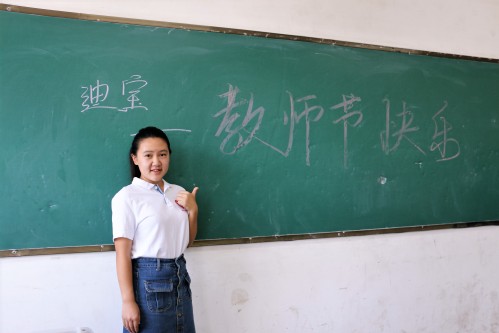 迪宝
教师节快乐